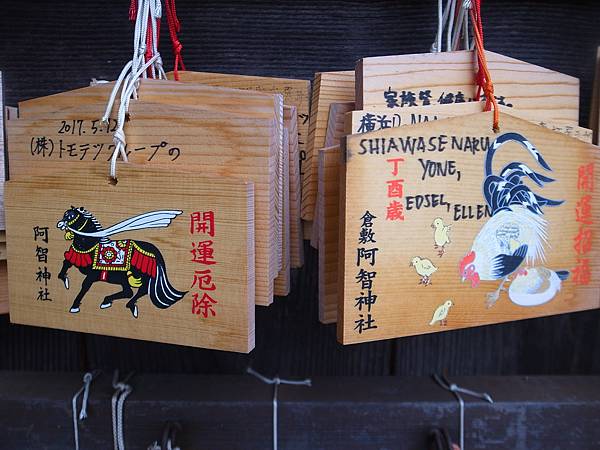 2017.5.12
(株)トモテツグループの
開運厄除
阿智神社
家族皆健康
横浜
SHIAWASE NARU
YONE,
EDSEL, ELLEN
丁酉歳
開運招福
倉敷 阿智神社